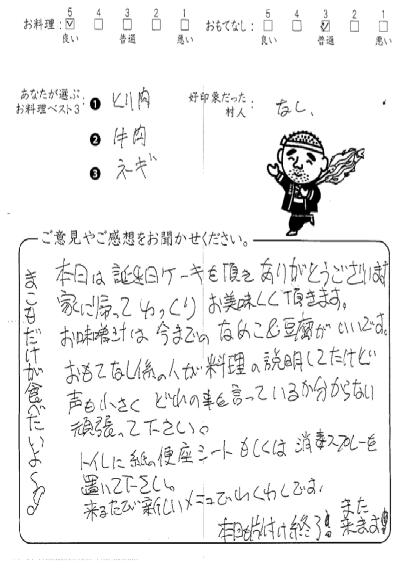 お料理: 5 4 3 2 1
良い 普通 悪い
おもてなし: 5 4 3 2 1
良い 普通 悪い
あなたが選ぶ
お料理ベスト3:
❶ とり肉
❷ 牛肉
❸ ネギ
好印象だった
村人:
なし、
ご意見やご感想をお聞かせください。
本日は誕生日ケーキを頂き ありがとうございます
家に帰って ゆっくり お美味しく頂きます。
お味噌汁は 今までの なめこ&豆腐が いいです。
おもてなし係の人が 料理の説明してたけど
声も小さく どれの事を言っているか分からない
頑張って下さい。
トイレに 紙の便座シート もしくは 消毒スプレーを
置いて下さい。
来るたびに新しいメニューでわくわくです。
本日も片付け終了! また
来ます!
まこもだけが食べたいよ〜